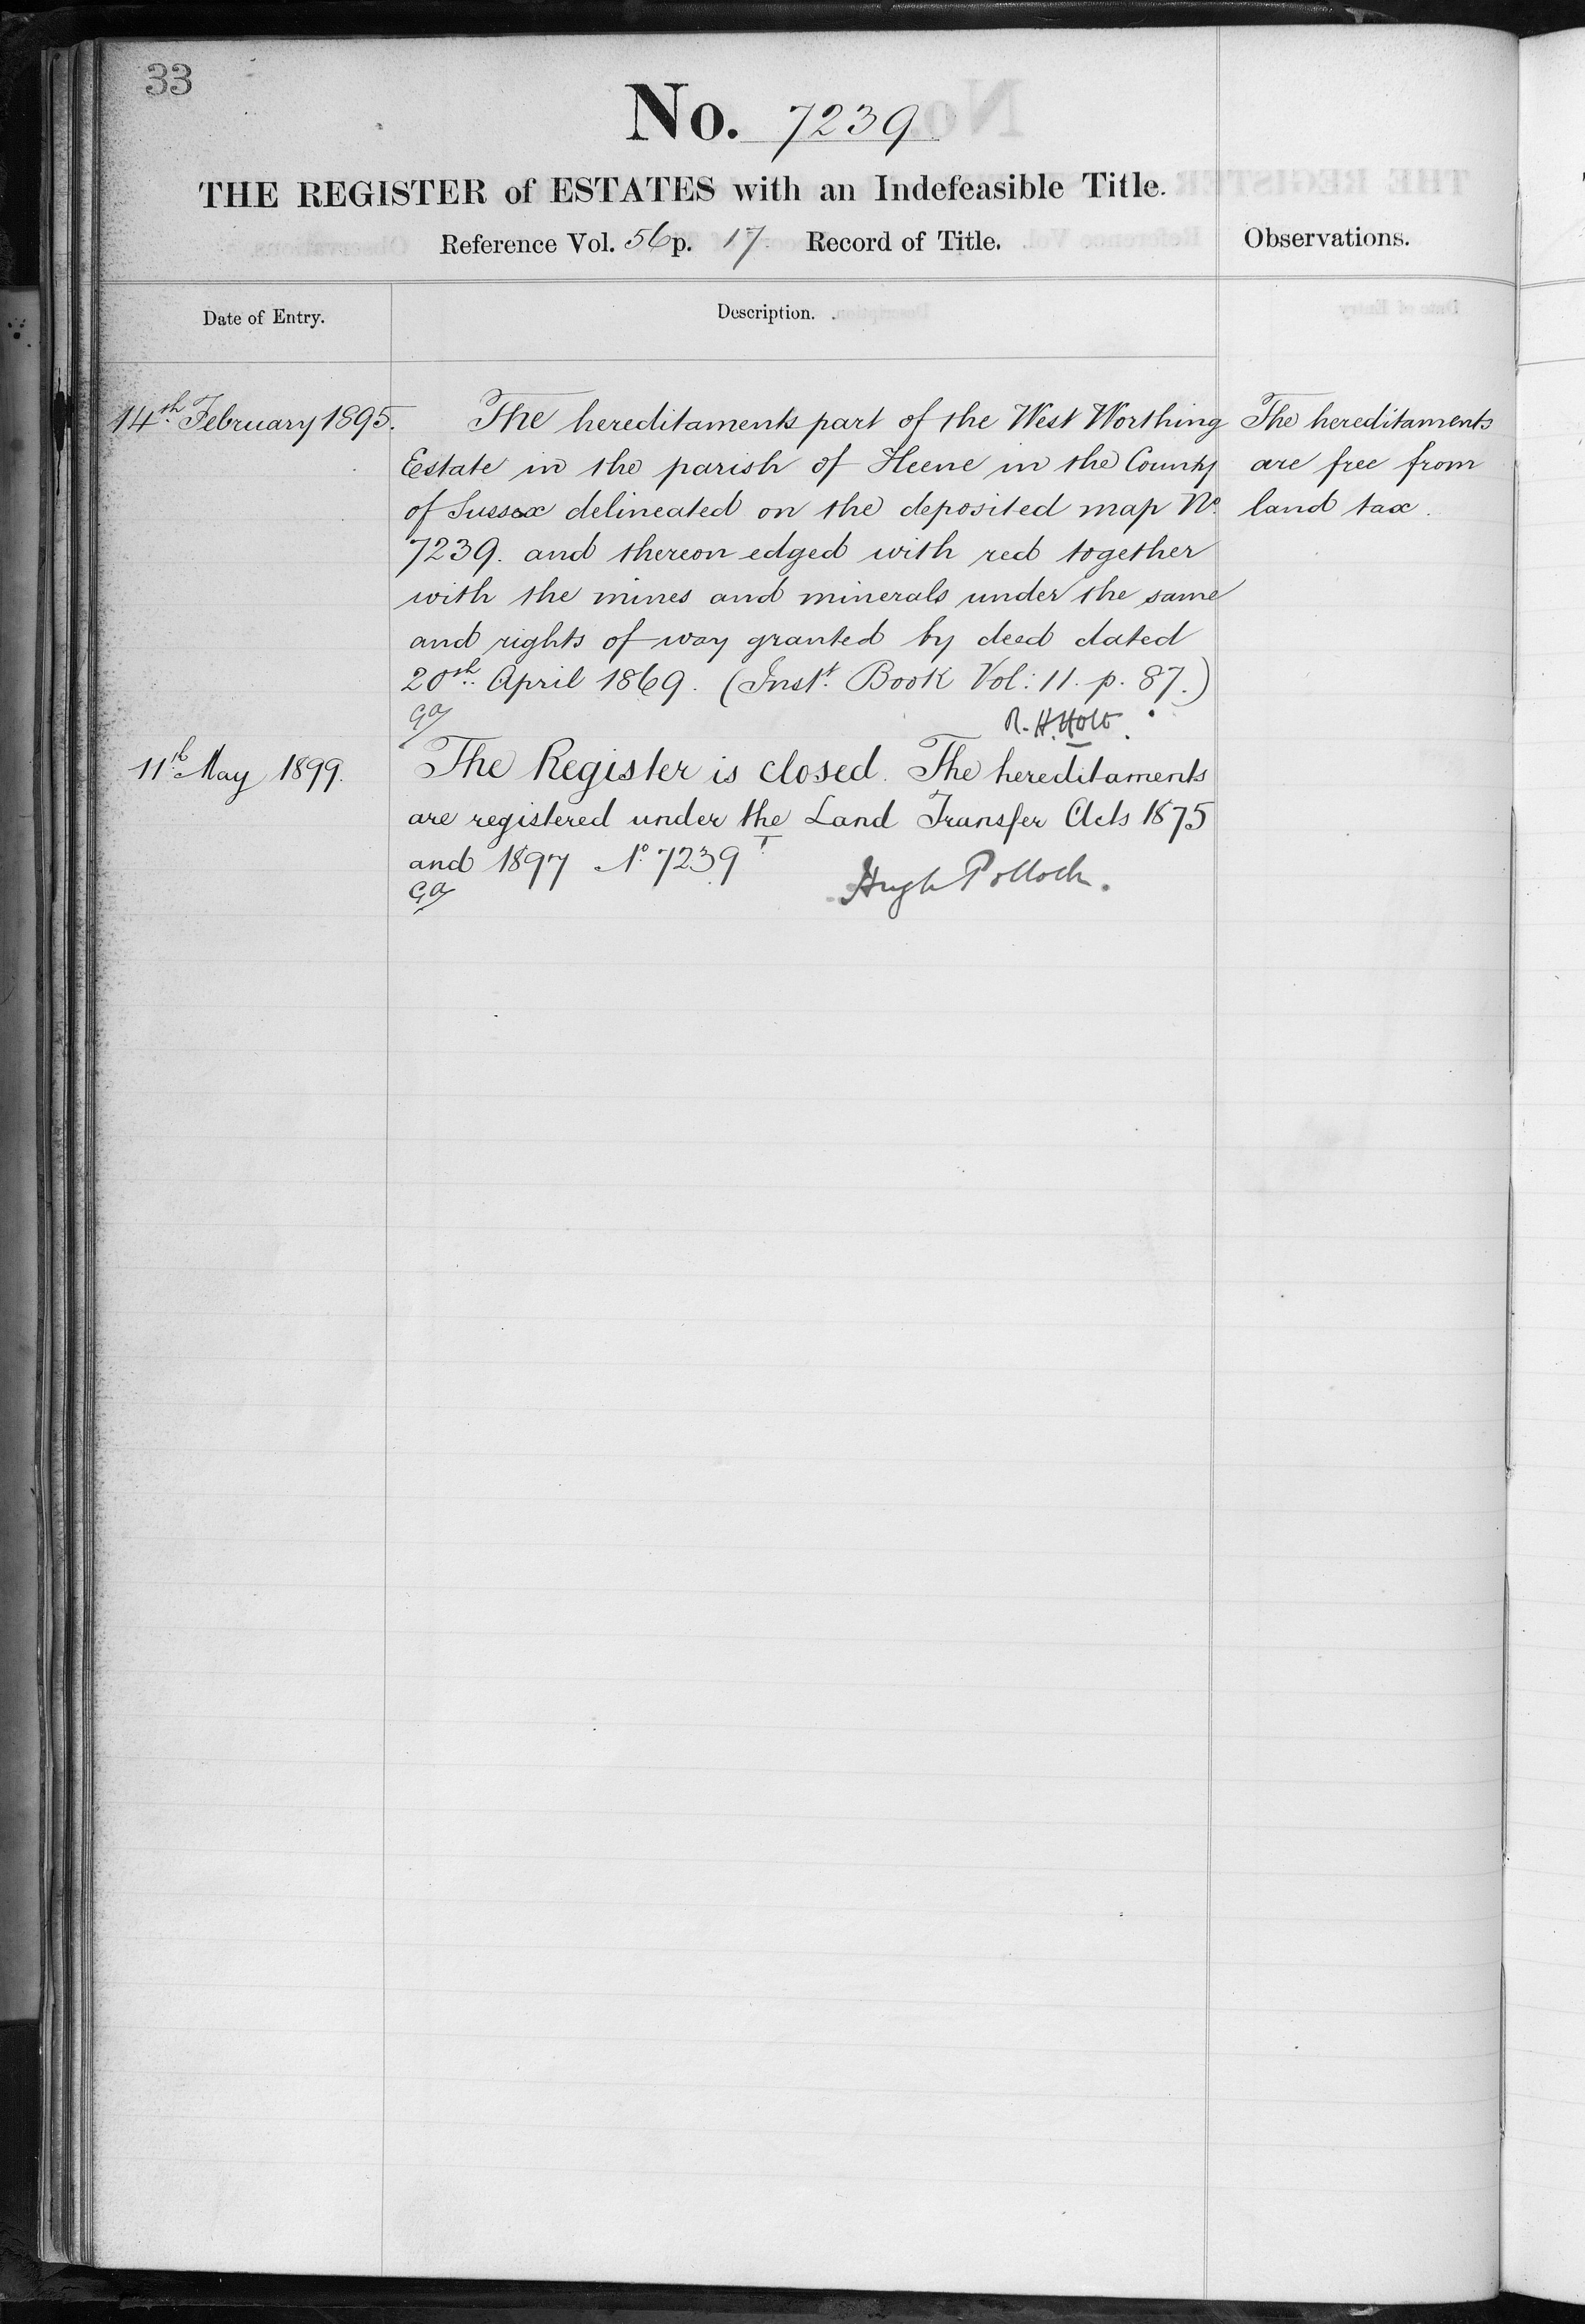 33
No. 7239
THE REGISTER of ESTATES with an Indefeasible Title.
Reference Vol. 56 p. 17 Record of Title.
Observations.
Date of Entry.
Description.
14th February 1895.
The hereditaments part of the West Worthing
Estate in the parish of Heene in the County
of Sussex delineated on the deposited map No.
7239. and thereon edged with red together
with the mines and minerals under the same
and rights of way granted by deed dated
20th April 1869. (Inst. Book Vol: 11. p. 87.)
R. H. Holt.
The hereditaments
are free from
land tax.
11th May 1899.
The Register is closed. The hereditaments
are registered under the Land Transfer Acts 1875
and 1897 No 7239
Hugh Pollock.